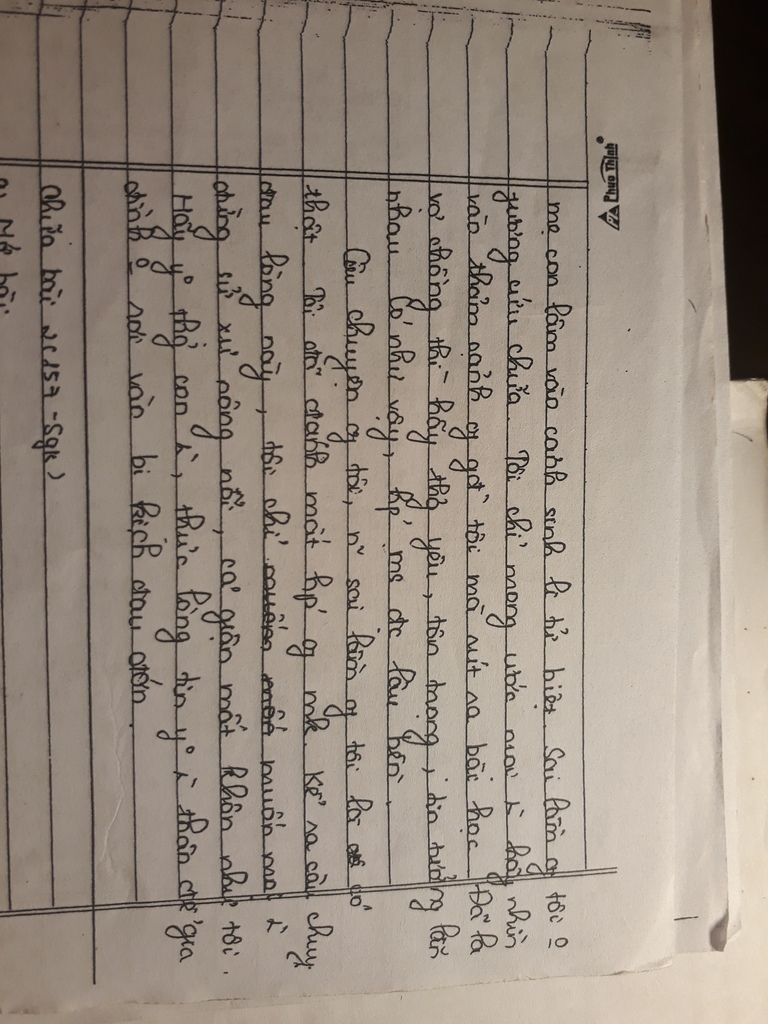 Phuc Thịnh
mẹ con lâm vào cảnh sinh li tử biệt. Sai lầm g tôi 0
gương cứu chữa. Tôi chỉ mong ước mọi ng hãy nhìn
vào thảm cảnh g gđ tôi mà rút ra bài học. Đã là
vợ chồng thì hãy thg yêu, tôn trọng, tin tưởng lẫn
nhau. Có như vậy, hp' ms đc lâu bền.
Câu chuyện g tôi, n~ sai lầm g tôi là có
thật. Tôi đã đánh mất hp' g mk. Kể ra câu chuyện
đau lòng này, tôi chỉ muốn mọi muốn mọi
đừng cư xử nông nổi, cả giận mất khôn như tôi.
Hãy y° thg con, thức lòng tin y° thân để gia
đình 0 rơi vào bi kịch đau đớn.
Chữa bài 2 (157 - Sgk)
a, Mở bài